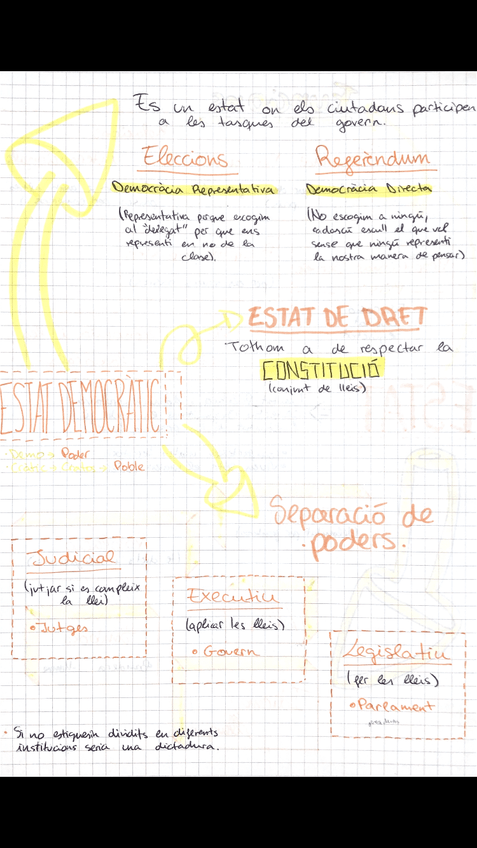 Es un estat on els ciutadans participen
a les tasques del govern.
Eleccions
Regerèndum
Democràcia Representativa
Democràcia Directa
(Representativa porque escogim
al "delegat" per que ens
representi en no de la
clase).
(No escogim a ningú,
cadascú escull el que vol
sense que ningú representi
la nostra manera de pensar)
ESTAT DE DRET
Tothom a de respectar la
CONSTITUCIÓ
(conjunt de lleis)
ESTAT DEMOCRÀTIC
· Demo = Poder
Poble
Separació de
·poders.
Judicial
(jutjar si es compleix
la llei)
• Jutges
Executiu
(aplicar les lleis)
• Govern
Legislatiu
(fer les lleis)
• Parlament
· Si no estiguessin dividits en diferents
institucions seria una dictadura.